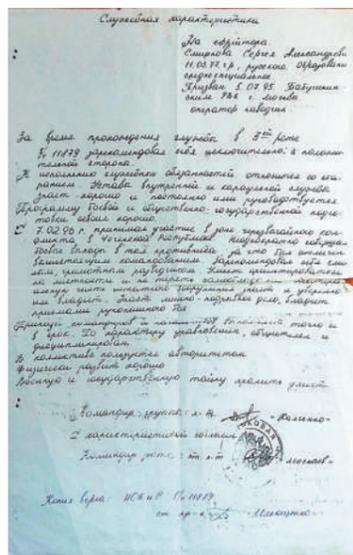 Служебная характеристика
На ефрейтора
Смирнова Сергея Александрови
11.03.77 г.р., русского, образовани
средне специальное.
Призван 5.07.95. Бабушкин
ским РВК г. Москвы
оператор наводчик
За время прохождения службы в 3ей роте
в/ч 11879 зарекомендовал себя исключительно с положи
тельной стороны.
К исполнению служебных обязанностей относится со ста
ранием. Устава внутренней и караульной службы
знает хорошо и постоянно ими руководствуется
Программу боевой и общественно-государственной подго
товки освоил хорошо.
С 7.02.96 г. принимал участие в зоне чрезвычайного кон
фликта в Чеченской Республике. Неоднократно
боевые в тыл противника за что был отмечен
командованием. Зарекомендовал себя
грамотным разведчиком. Умеет ориентироваться
на местности и по карте
владеет. Знает минно-подрывное дело, владеет
приемами рукопашного боя
Приказы командиров и выполняет точно и
в срок. По характеру уравновешен, общителен и
дисциплинирован.
В коллективе пользуется авторитетом
Физически развит хорошо
Военную и государственную тайну хранить умеет
Командир группы
С характеристикой согласен
Командир роты
Копия верна: в/ч 11879
ст. пр-к